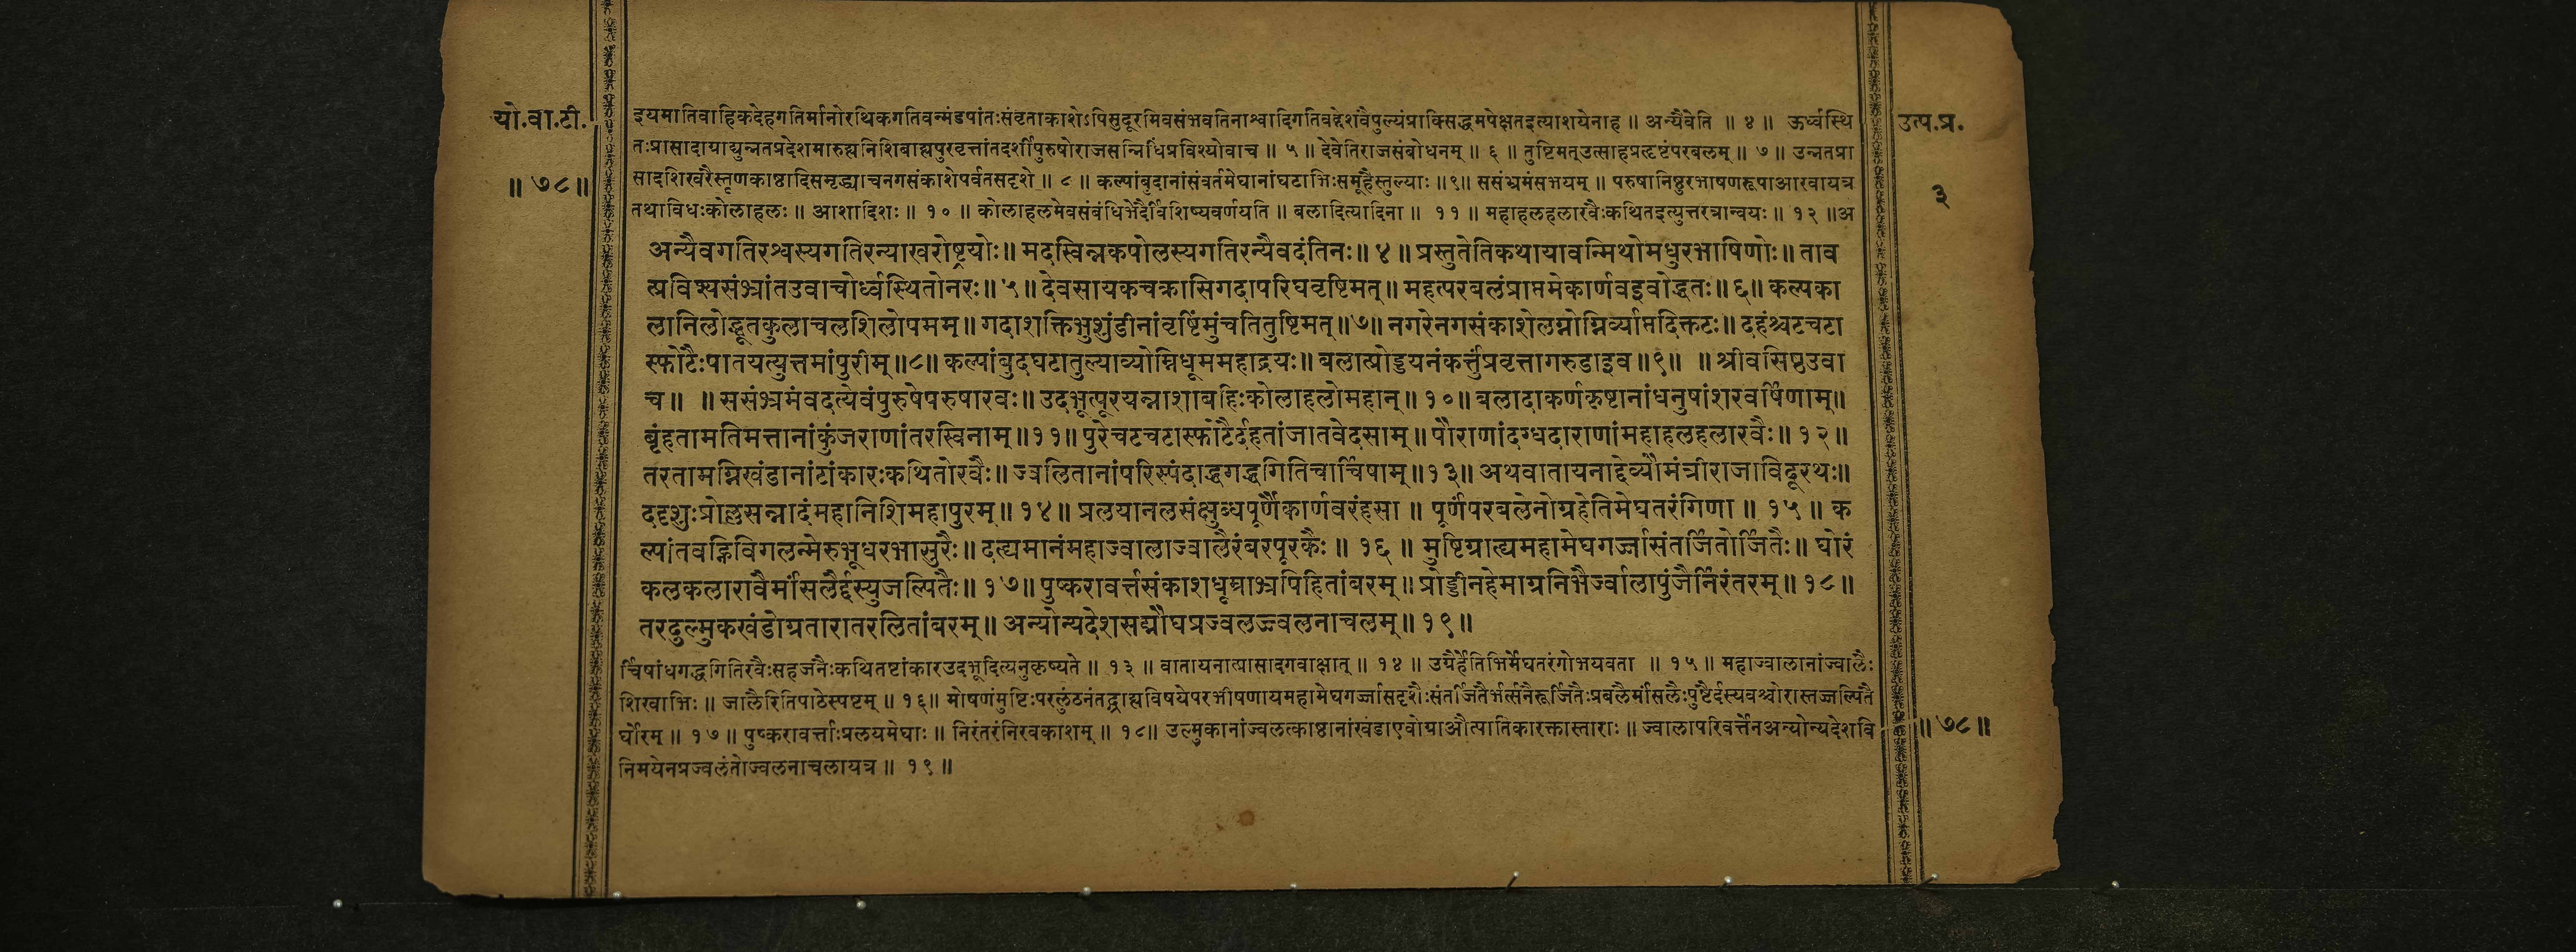 यो.वा.टी.
॥ ७८ ॥
इयमातिवाहिकदेहगतिर्मानोरथिकगतिवन्मंडपांतःसंवृताकाशेऽपिसुदूरमिवसंभवतिनाश्वादिगतिवद्देशवैपुल्यंप्राक्सिद्धमपेक्षतइत्याशयेनाह ॥ अन्यैवेति ॥ ४ ॥ ऊर्ध्वस्थि
तःप्रासादायाद्युन्नतप्रदेशमारुह्यनिशिबाह्यपुरवृत्तांतदर्शीपुरुषोराजसन्निधिंप्रविश्योवाच ॥ ५ ॥ देवेतिराजसंबोधनम् ॥ ६ ॥ तुष्टिमत्उत्साहप्रहृष्टंपरबलम् ॥ ७ ॥ उन्नतप्रा
सादशिखरैस्तृणकाष्ठादिसमृद्ध्याचनगसंकाशेपर्वतसदृशे ॥ ८ ॥ कल्पांबुदानांसंवर्तमेघानांघटाभिःसमूहैस्तुल्याः ॥९॥ ससंभ्रमंसभयम् ॥ परुषानिष्ठुरभाषणरूपाआरवायत्र
तथाविधःकोलाहलः ॥ आशादिशः ॥ १० ॥ कोलाहलमेवसंबंधिभेदैर्विशिष्यवर्णयति ॥ बलादित्यादिना ॥ ११ ॥ महाहलहलारवैःकथितइत्युत्तरत्रान्वयः ॥ १२ ॥अ
अन्यैवगतिरश्वस्यगतिरन्याखरोष्ट्रयोः॥ मदस्विन्नकपोलस्यगतिरन्यैवदंतिनः॥ ४॥ प्रस्तुतेतिकथायावन्मिथोमधुरभाषिणोः॥ ताव
त्प्रविश्यसंभ्रांतउवाचोर्ध्वस्थितोनरः॥ ५॥ देवसायकचक्रासिगदापरिघवृष्टिमत्॥ महत्परबलंप्राप्तमेकार्णवइवोद्धतः॥ ६॥ कल्पका
लानिलोद्धूतकुलाचलशिलोपमम्॥ गदाशक्तिभुशुंडीनांवृष्टिंमुंचतितुष्टिमत्॥७॥ नगरेनगसंकाशेलग्नोग्निर्व्याप्तदिक्तटः॥ दहंश्चटचटा
स्फोटैःपातयत्युत्तमांपुरीम्॥८॥ कल्पांबुदघटातुल्याव्योम्निधूममहाद्रयः॥ बलात्प्रोड्डयनंकर्त्तुंप्रवृत्तागरुडाइव॥९॥ ॥ श्रीवसिष्ठउवा
च॥ ॥ ससंभ्रमंवदत्येवंपुरुषेपरुषारवः॥ उदभूत्पूरयन्नाशाबहिःकोलाहलोमहान्॥ १०॥ बलादाकर्णकृष्टानांधनुषांशरवर्षिणाम्॥
बृंहतामतिमत्तानांकुंजराणांतरस्विनाम्॥११॥ पुरेचटचटास्फोटैर्दहतांजातवेदसाम्॥ पौराणांदग्धदाराणांमहाहलहलारवैः॥ १२॥
तरतामग्निखंडानांटांकारःकथितोरवैः॥ ज्वलितानांपरिस्पंदाद्धगद्धगितिचार्चिषाम्॥१३॥ अथवातायनाद्देव्यौमंत्रीराजाविदूरथः॥
ददृशुःप्रोल्लसन्नादंमहानिशिमहापुरम्॥ १४॥ प्रलयानलसंक्षुब्धपूर्णैकार्णवरंहसा॥ पूर्णंपरबलेनोग्रहेतिमेघतरंगिणा॥ १५॥ क
ल्पांतवह्निविगलन्मेरुभूधरभासुरैः॥ दह्यमानंमहाज्वालाज्वालैरंबरपूरकैः॥ १६॥ मुष्टिग्राह्यमहामेघगर्ज्जासंतर्जितोर्जितैः॥ घोरं
कलकलारावैर्मांसलैर्दस्युजल्पितैः॥ १७॥ पुष्करावर्त्तसंकाशधूम्राभ्रपिहितांबरम्॥ प्रोड्डीनहेमाग्रनिभैर्ज्वालापुंजैर्निरंतरम्॥ १८॥
तरदुल्मुकखंडोग्रतारातरलितांबरम्॥ अन्योन्यदेशसद्मौघप्रज्वलज्ज्वलनाचलम्॥ १९॥
र्चिषांधगद्धगितिरवैःसहजनैःकथितष्टांकारउदभूदित्यनुकृष्यते ॥ १३ ॥ वातायनात्प्रासादगवाक्षात् ॥ १४ ॥ उग्रैर्हेतिभिर्मेघतरंगोभयवता ॥ १५ ॥ महाज्वालानांज्वालैः
शिखाभिः ॥ जालैरितिपाठेस्पष्टम् ॥ १६॥ मोषणंमुष्टिःपरलुंठनंतद्ग्राह्यविषयेपरभीषणायमहामेघगर्ज्जासदृशैःसंतर्जितैर्भर्त्सनैरूर्जितैःप्रबलैर्मांसलैःपुष्टैर्दस्यवश्चोरास्तज्जल्पितै
र्घोरम् ॥ १७ ॥ पुष्करावर्त्ताःप्रलयमेघाः ॥ निरंतरंनिरवकाशम् ॥ १८॥ उल्मुकानांज्वलत्काष्ठानांखंडाएवोग्राऔत्पातिकारक्तास्ताराः ॥ ज्वालापरिवर्त्तेनअन्योन्यदेशवि
निमयेनप्रज्वलंतोज्वलनाचलायत्र ॥ १९ ॥
उत्प.प्र.
३
॥ ७८ ॥